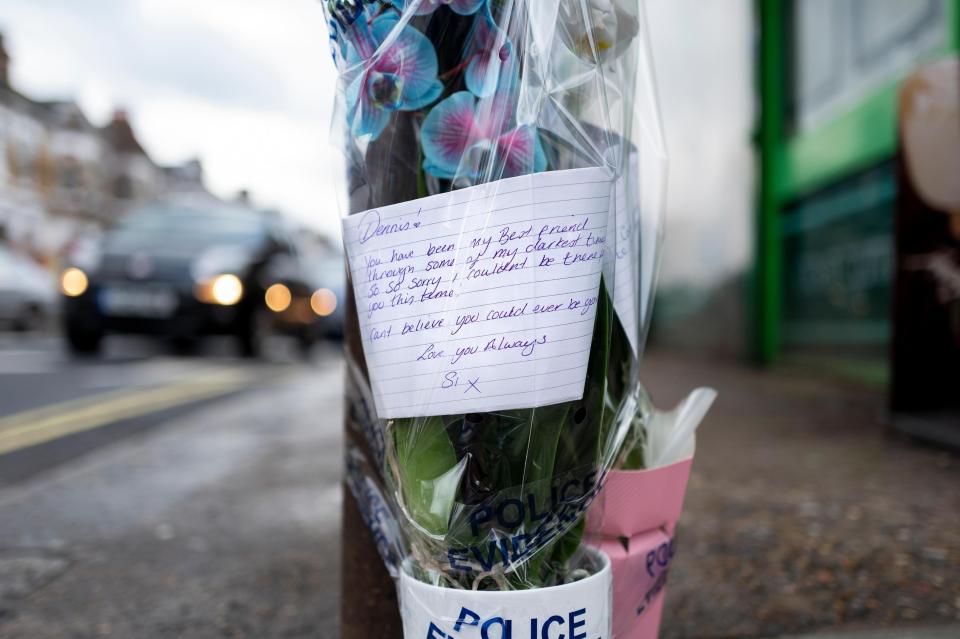 Dennis!
You have been my Best friend
through some of my darkest
So So Sorry I couldnt be there
you this time.
Cant believe you could ever be
Love you Always
Si x
POLICE
EVIDENCE
POLICE